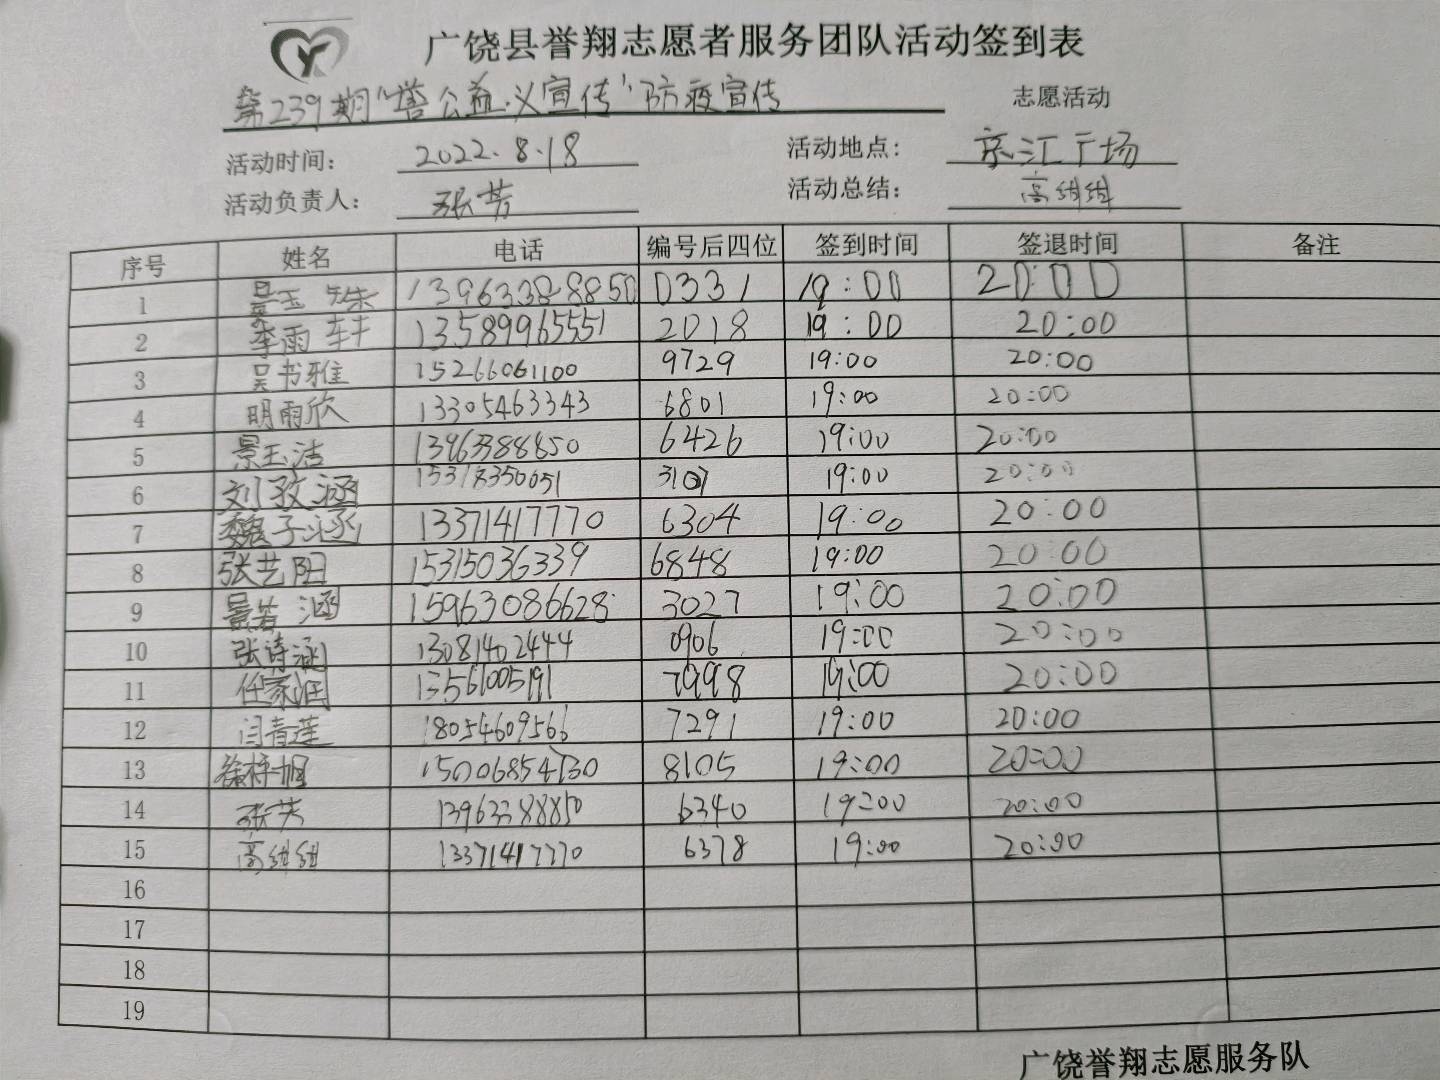 广饶县誉翔志愿者服务团队活动签到表
第239期"誉公益、义宣传"防疫宣传 志愿活动
活动时间： 2022.8.18 活动地点： 京江广场
活动负责人： 张芳 活动总结： 高甜甜
序号 姓名 电话 编号后四位 签到时间 签退时间 备注
1 景玉 13963388850 0331 19:00 20:00
2 李雨轩 13589965551 2018 19:00 20:00
3 吴书雅 15266061100 9729 19:00 20:00
4 明雨欣 13305463343 6801 19:00 20:00
5 景玉洁 13963388850 6426 19:00 20:00
6 刘孜涵 15318350051 3107 19:00 20:00
7 魏子涵 13371417770 6304 19:00 20:00
8 张艺阳 15315036339 6848 19:00 20:00
9 景若涵 15963086628 3027 19:00 20:00
10 张诗涵 13081402444 0906 19:00 20:00
11 任家润 13561005191 7998 19:00 20:00
12 闫青莲 18054609566 7291 19:00 20:00
13 徐梓 15006854730 8105 19:00 20:00
14 张芳 13963388850 6340 19:00 20:00
15 高甜甜 13371417770 6378 19:00 20:00
16
17
18
19
广饶誉翔志愿服务队